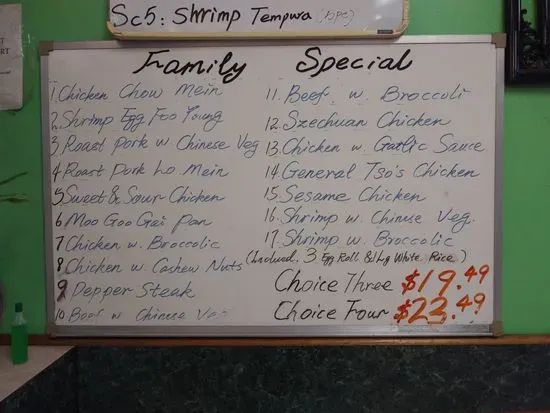 Sc5: Shrimp Tempura (10pc)
Family Special
1. Chicken Chow Mein
2. Shrimp Egg Foo Young
3 Roast Pork w Chinese Veg
4 Roast Pork Lo Mein
5 Sweet & Sour Chicken
6 Moo Goo Gai Pan
7 Chicken w. Broccolic
8 Chicken w. Cashew Nuts
9 Pepper Steak
10 Beef w Chinese Veg
11. Beef w. Broccoli
12. Szechuan Chicken
13. Chicken w. Garlic Sauce
14 General Tso's Chicken
15 Sesame Chicken
16. Shrimp w. Chinese Veg.
17. Shrimp w. Broccolic
(Includ. 3 Egg Roll & 1 Lg White Rice)
Choice Three $19.49
Choice Four $23.49